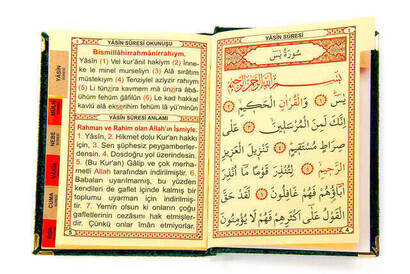 YÂSÎN SÛRESİ OKUNUŞU
Bismillâhirrahmânirrahıym.
1) Yâsîn (2) Vel kur'ânil hakiym (2) İnne-
ke le minel murseliyn (3) Alâ sırâtım
müstekıym (4) Tenziylel aziyzir rahıym
(5) Li tünzira kavmem mâ ünzira âbâ-
ühüm fehüm ğâfilûn (6) Le kad hakkal
kavlü alâ ekserihim fehüm lâ yü'minûn
YÂSÎN SÛRESİ ANLAMI
Rahman ve Rahim olan Allah'ın İsmiyle.
1. Yâsîn, 2. Hikmet dolu Kur'an hakkı
için, 3. Sen şüphesiz peygamberler-
densin. 4. Dosdoğru yol üzerindesin.
5. (Bu Kur'an) Gâlip ve çok merha-
metli Allah tarafından indirilmiştir.
6. Babaları uyarılmamış, bu yüzden
kendileri de gaflet içinde kalmış bir
toplumu uyarman için indirilmiştir.
7. Yemin olsun ki onların çoğu
gafletlerinin cezasını hak etmişler-
dir. Çünkü onlar iman etmiyorlar.
YÂSÎN
MÜLK
NEBE
CUMA
YÂSÎN SÛRESİ
سُورَةُ يٰسٓ
بِسْمِ اللّٰهِ الرَّحْمٰنِ الرَّحِيمِ
يٰسٓ ۝ وَالْقُرْاٰنِ الْحَكِيمِ ۝
اِنَّكَ لَمِنَ الْمُرْسَلِينَ ۝ عَلٰى
صِرَاطٍ مُسْتَقِيمٍ ۝ تَنْزِيلَ الْعَزِيزِ
الرَّحِيمِ ۝ لِتُنْذِرَ قَوْمًا مَا اُنْذِرَ
اٰبَاؤُهُمْ فَهُمْ غَافِلُونَ ۝ لَقَدْ حَقَّ
الْقَوْلُ عَلٰى اَكْثَرِهِمْ فَهُمْ لَا يُؤْمِنُونَ
4